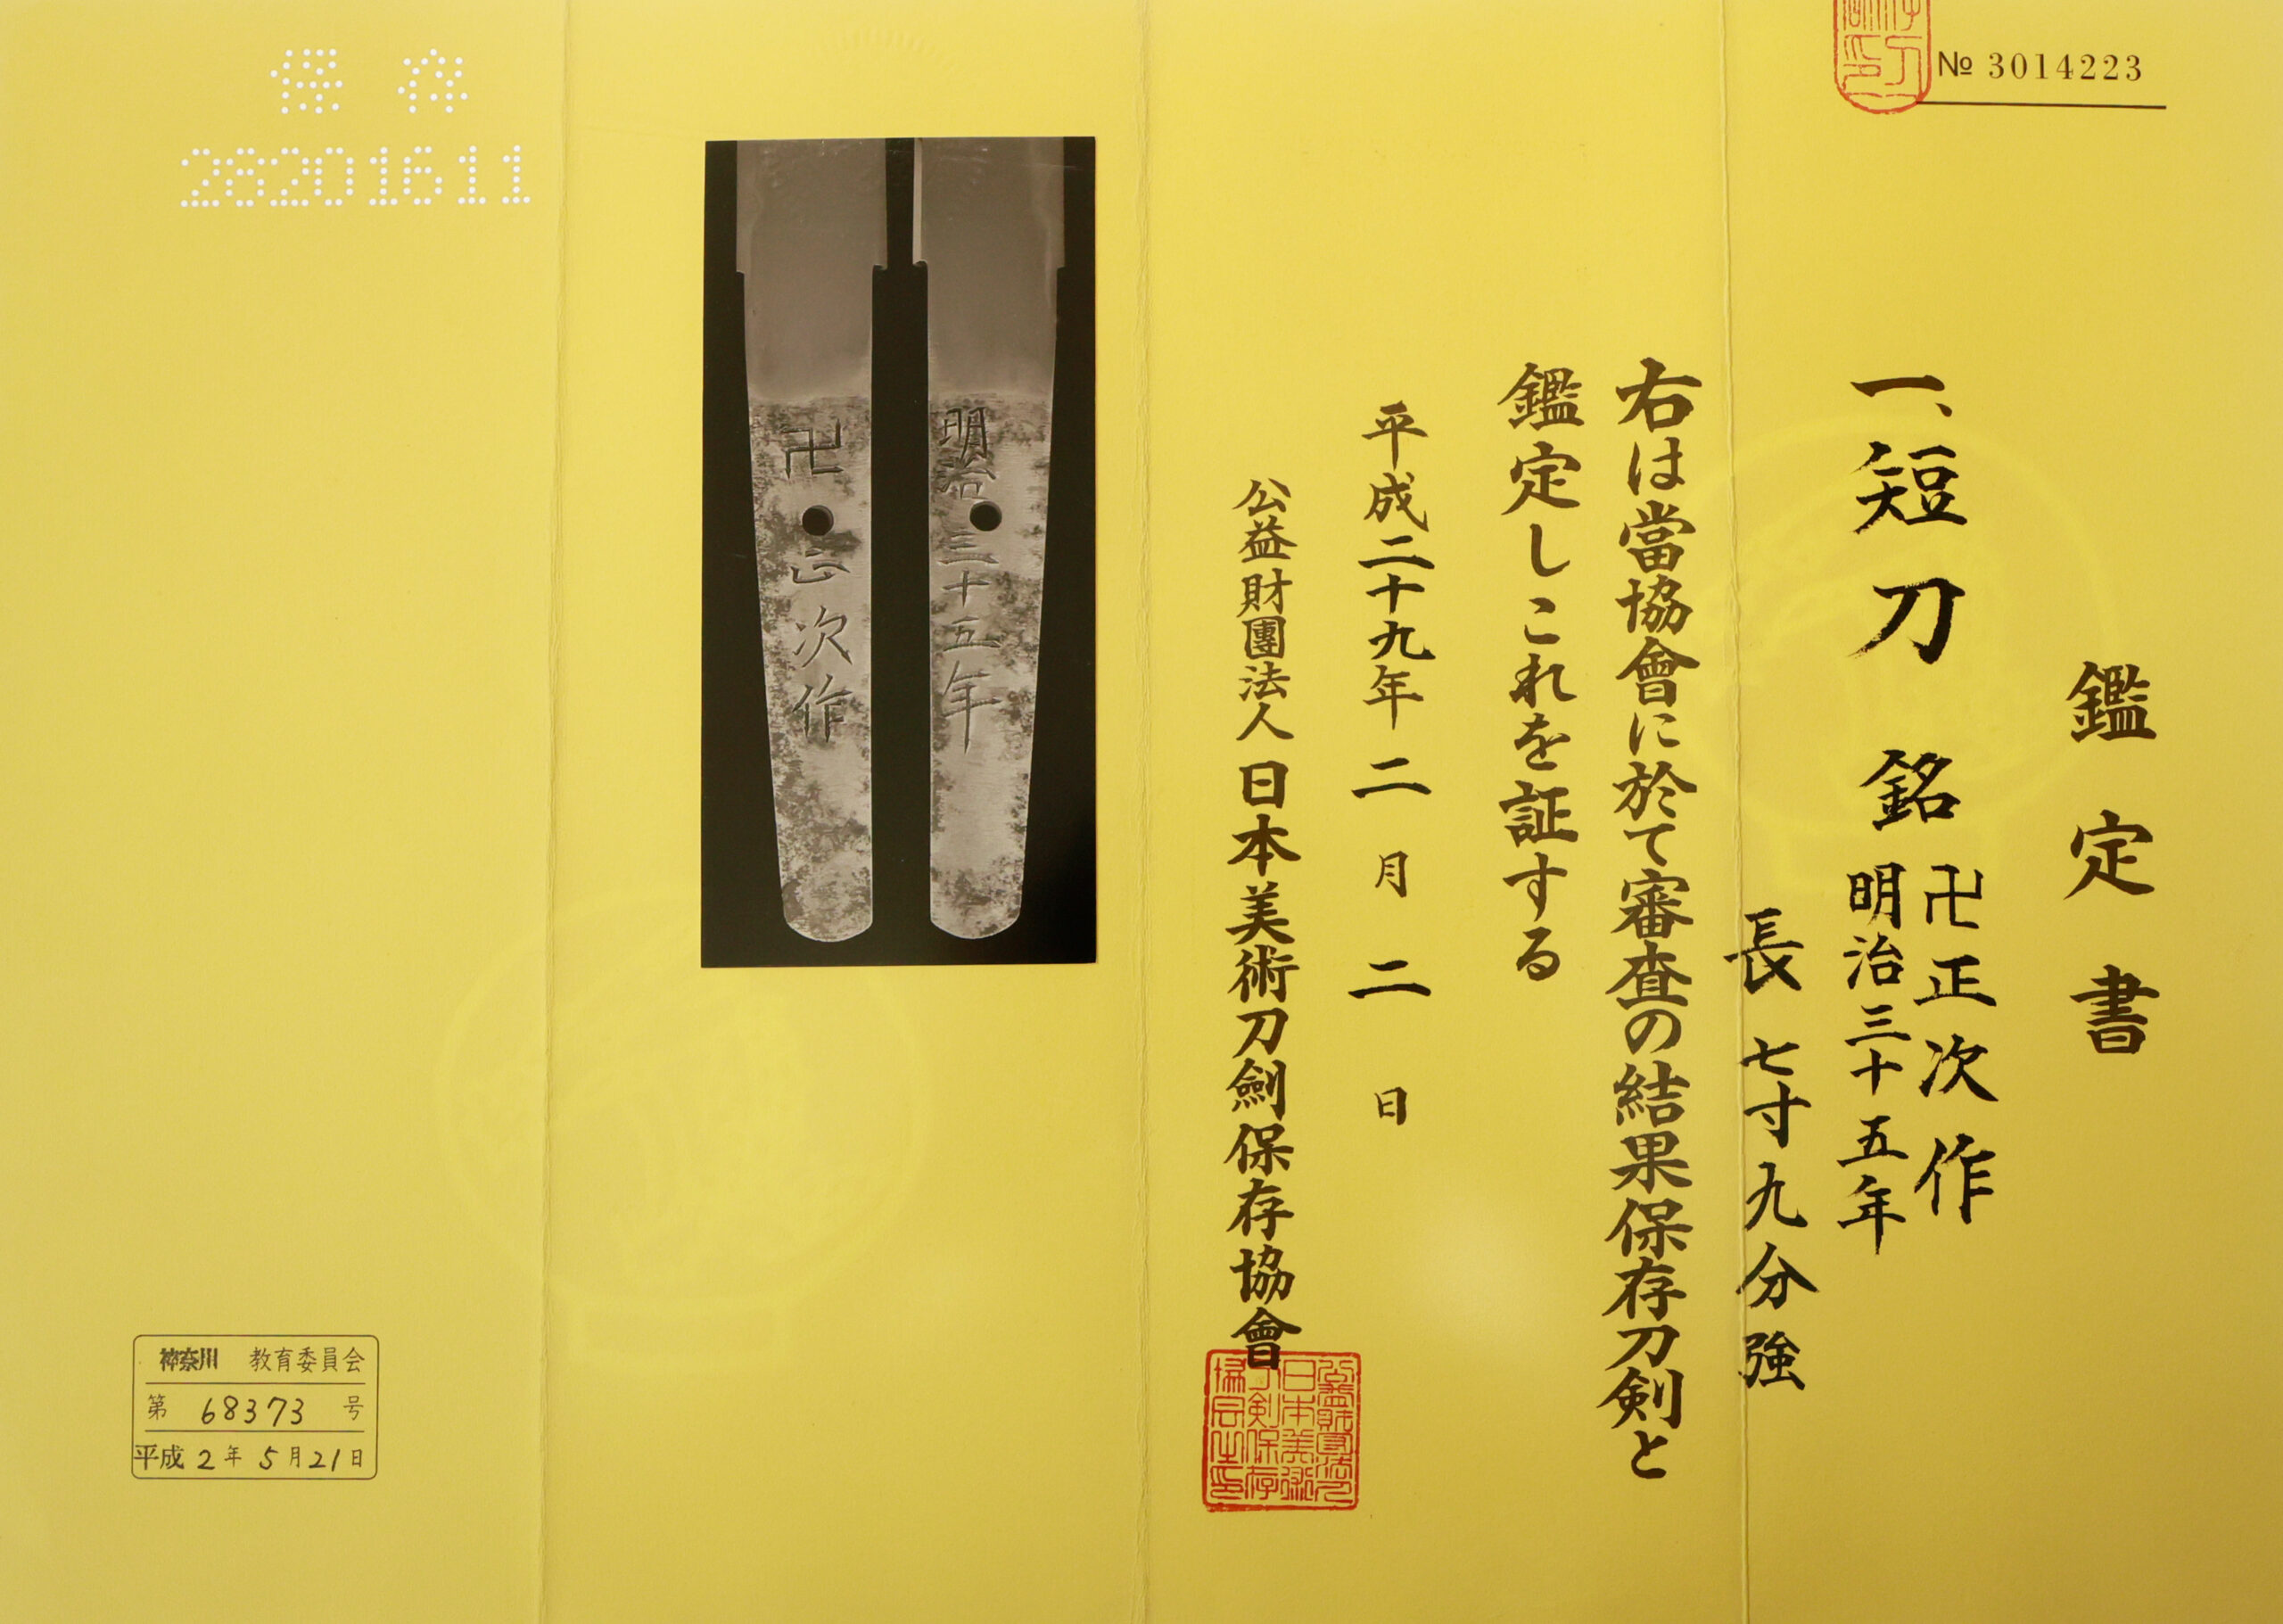 № 3014223
鑑定書
一、短刀 銘 卍正次作
明治三十五年
長 七寸九分強
右は當協會に於て審査の結果保存刀剣と
鑑定しこれを証する
平成二十九年二月二日
公益財團法人日本美術刀劍保存協會
明治三十五年
卍正次作
保存
28201611
神奈川 教育委員会
第 68373 号
平成 2年 5月21日